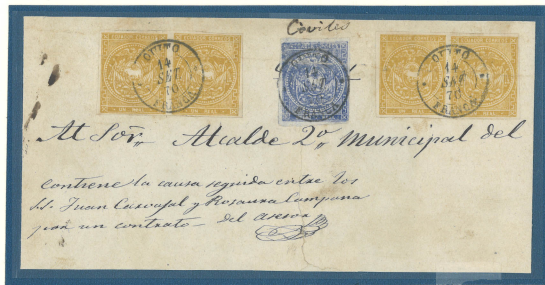 Coviles
QUITO
14
SET
70
FRANCA
QUITO
14
SET
70
FRANCA
QUITO
14
SET
70
FRANCA
Al Sor. Alcalde 2o Municipal del
Contiene la causa seguida entre los
SS. Juan Carvajal y Rosaura Campana
por un contrato - del asesor